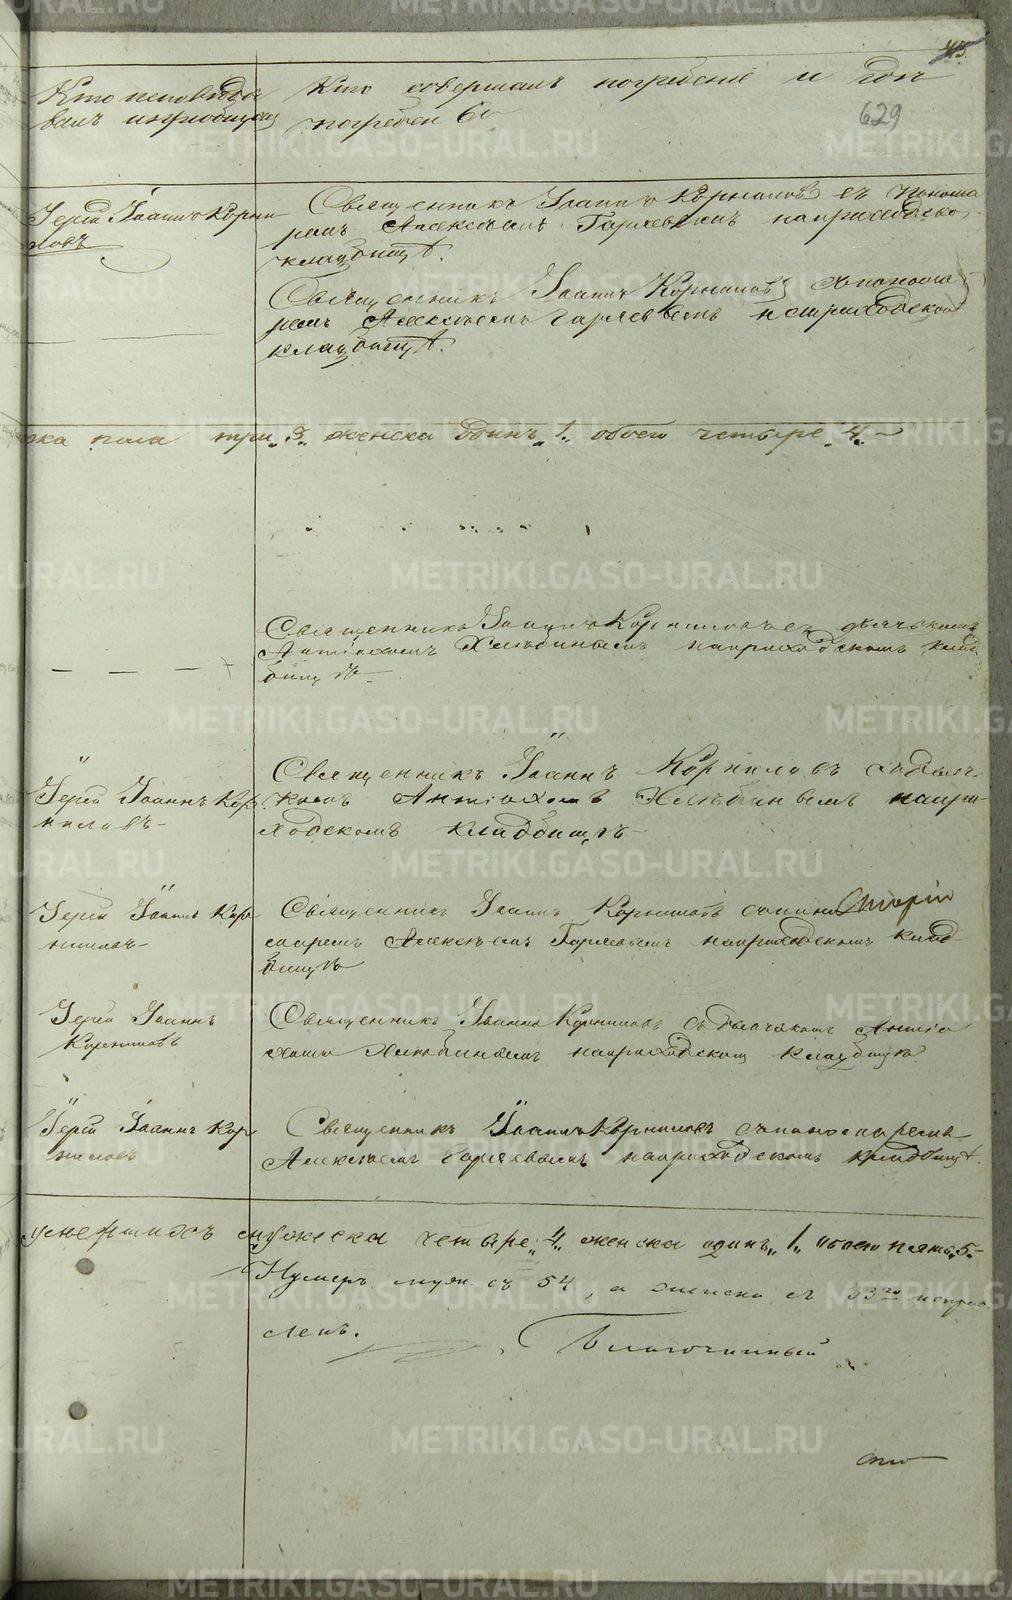 45.
629
Кто исповѣды
валъ и пріобщалъ
Кто совершалъ погребеніе и гдѣ
погребены
Іерей Іоаннъ Корни
ловъ
Священникъ Іоаннъ Корниловъ съ понома
ремъ Алексѣемъ Гаряевымъ на приходско
кладбищѣ.
Священникъ Іоаннъ Корниловъ съ понома
ремъ Алексѣемъ Гаряевымъ на приходском
кладбищѣ.
ска пола три „3„ женска одинъ „1„ обоего четыре „4„
Священникъ Іоаннъ Корниловъ съ дьячкомъ
Антіохомъ Хлѣбинымъ на приходскомъ клад
бищѣ
Іерей Іоаннъ Кор
ниловъ
Священникъ Іоаннъ Корниловъ съ дьяч
комъ Антіохомъ Хлѣбинымъ на при-
ходскомъ кладбищѣ
Іерей Іоаннъ Кор
ниловъ
Священникъ Іоаннъ Корниловъ
Алексѣемъ Гаряевымъ на приходскомъ клад
бищѣ
Іерей Іоаннъ
Корниловъ
Священникъ Іоаннъ Корниловъ съ дьячкомъ Антіо
хомъ Хлѣбинымъ на приходском кладбищѣ
Іерей Іоаннъ Кор
ниловъ
Священникъ Іоаннъ Корниловъ съ пономаремъ
Алексѣемъ Гаряевымъ на приходскомъ кладбищѣ.
умершихъ мужеска четыре „4„ женска одинъ „1„ обоего пять „5„
Нумеръ муж. съ 54, а женски съ 33го исправ
ленъ.
Благочинный
METRIKI.GASO-URAL.RU